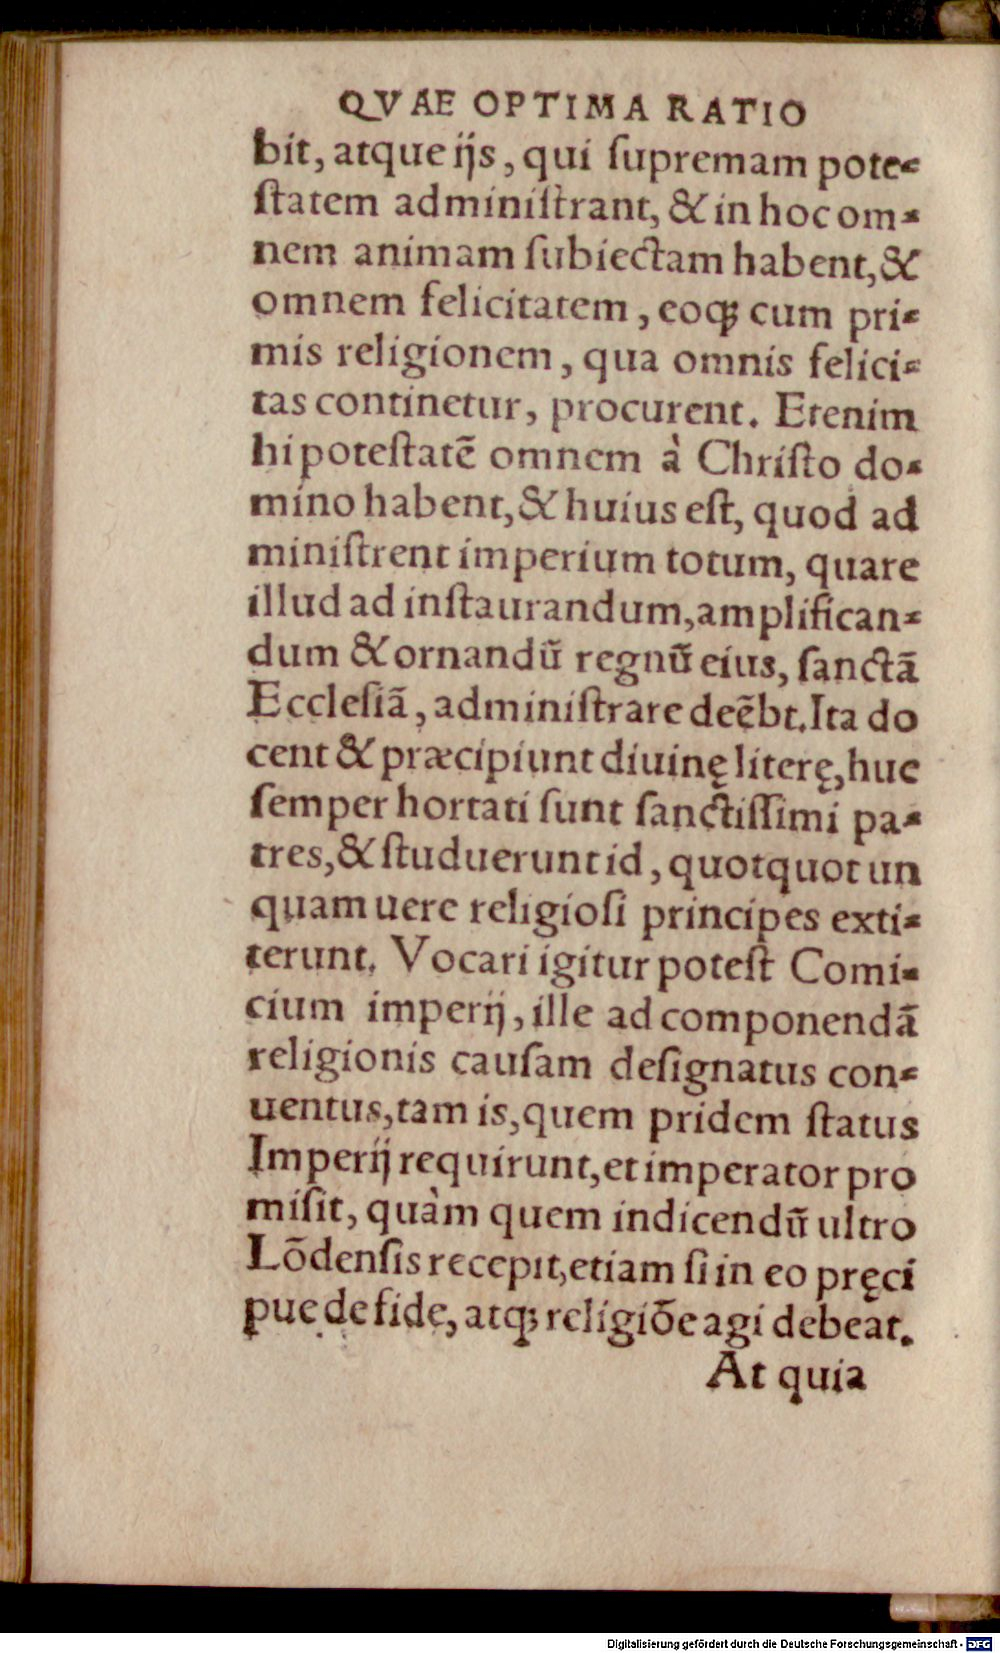 QVAE OPTIMA RATIO
bit, atque ijs, qui ſupremam pote-
ſtatem adminiſtrant, & in hoc om-
nem animam ſubiectam habent, &
omnem felicitatem, eoq́; cum pri-
mis religionem, qua omnis felici-
tas continetur, procurent. Etenim
hi poteſtatē omnem à Chriſto do-
mino habent, & huius eſt, quod ad
miniſtrent imperium totum, quare
illud ad inſtaurandum, amplifican-
dum & ornandū regnū eius, ſanctā
Eccleſiā, adminiſtrare deēbt. Ita do
cent & præcipiunt diuinę literę, huc
ſemper hortati ſunt ſanctiſſimi pa-
tres, & ſtuduerunt id, quotquot un
quam uere religioſi principes exti-
terunt. Vocari igitur poteſt Comi-
cium imperij, ille ad componendā
religionis cauſam deſignatus con-
uentus, tam is, quem pridem ſtatus
Imperij requirunt, et imperator pro
miſit, quàm quem indicendū ultro
Lōdenſis recepit, etiam ſi in eo pręci
pue de fide, atq; religiōe agi debeat.
At quia
Digitalisierung gefördert durch die Deutsche Forschungsgemeinschaft - DFG